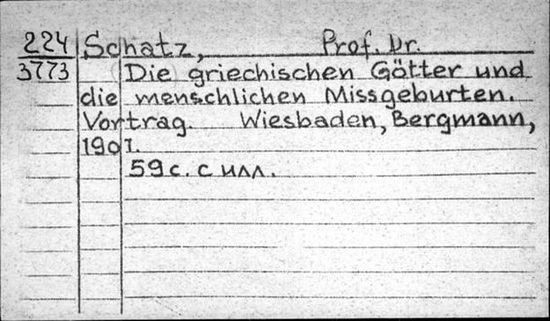 224 Schatz, Prof. Dr.
3773 Die griechischen Götter und
die menschlichen Missgeburten.
Vortrag. Wiesbaden, Bergmann,
1901.
59 с. с илл.